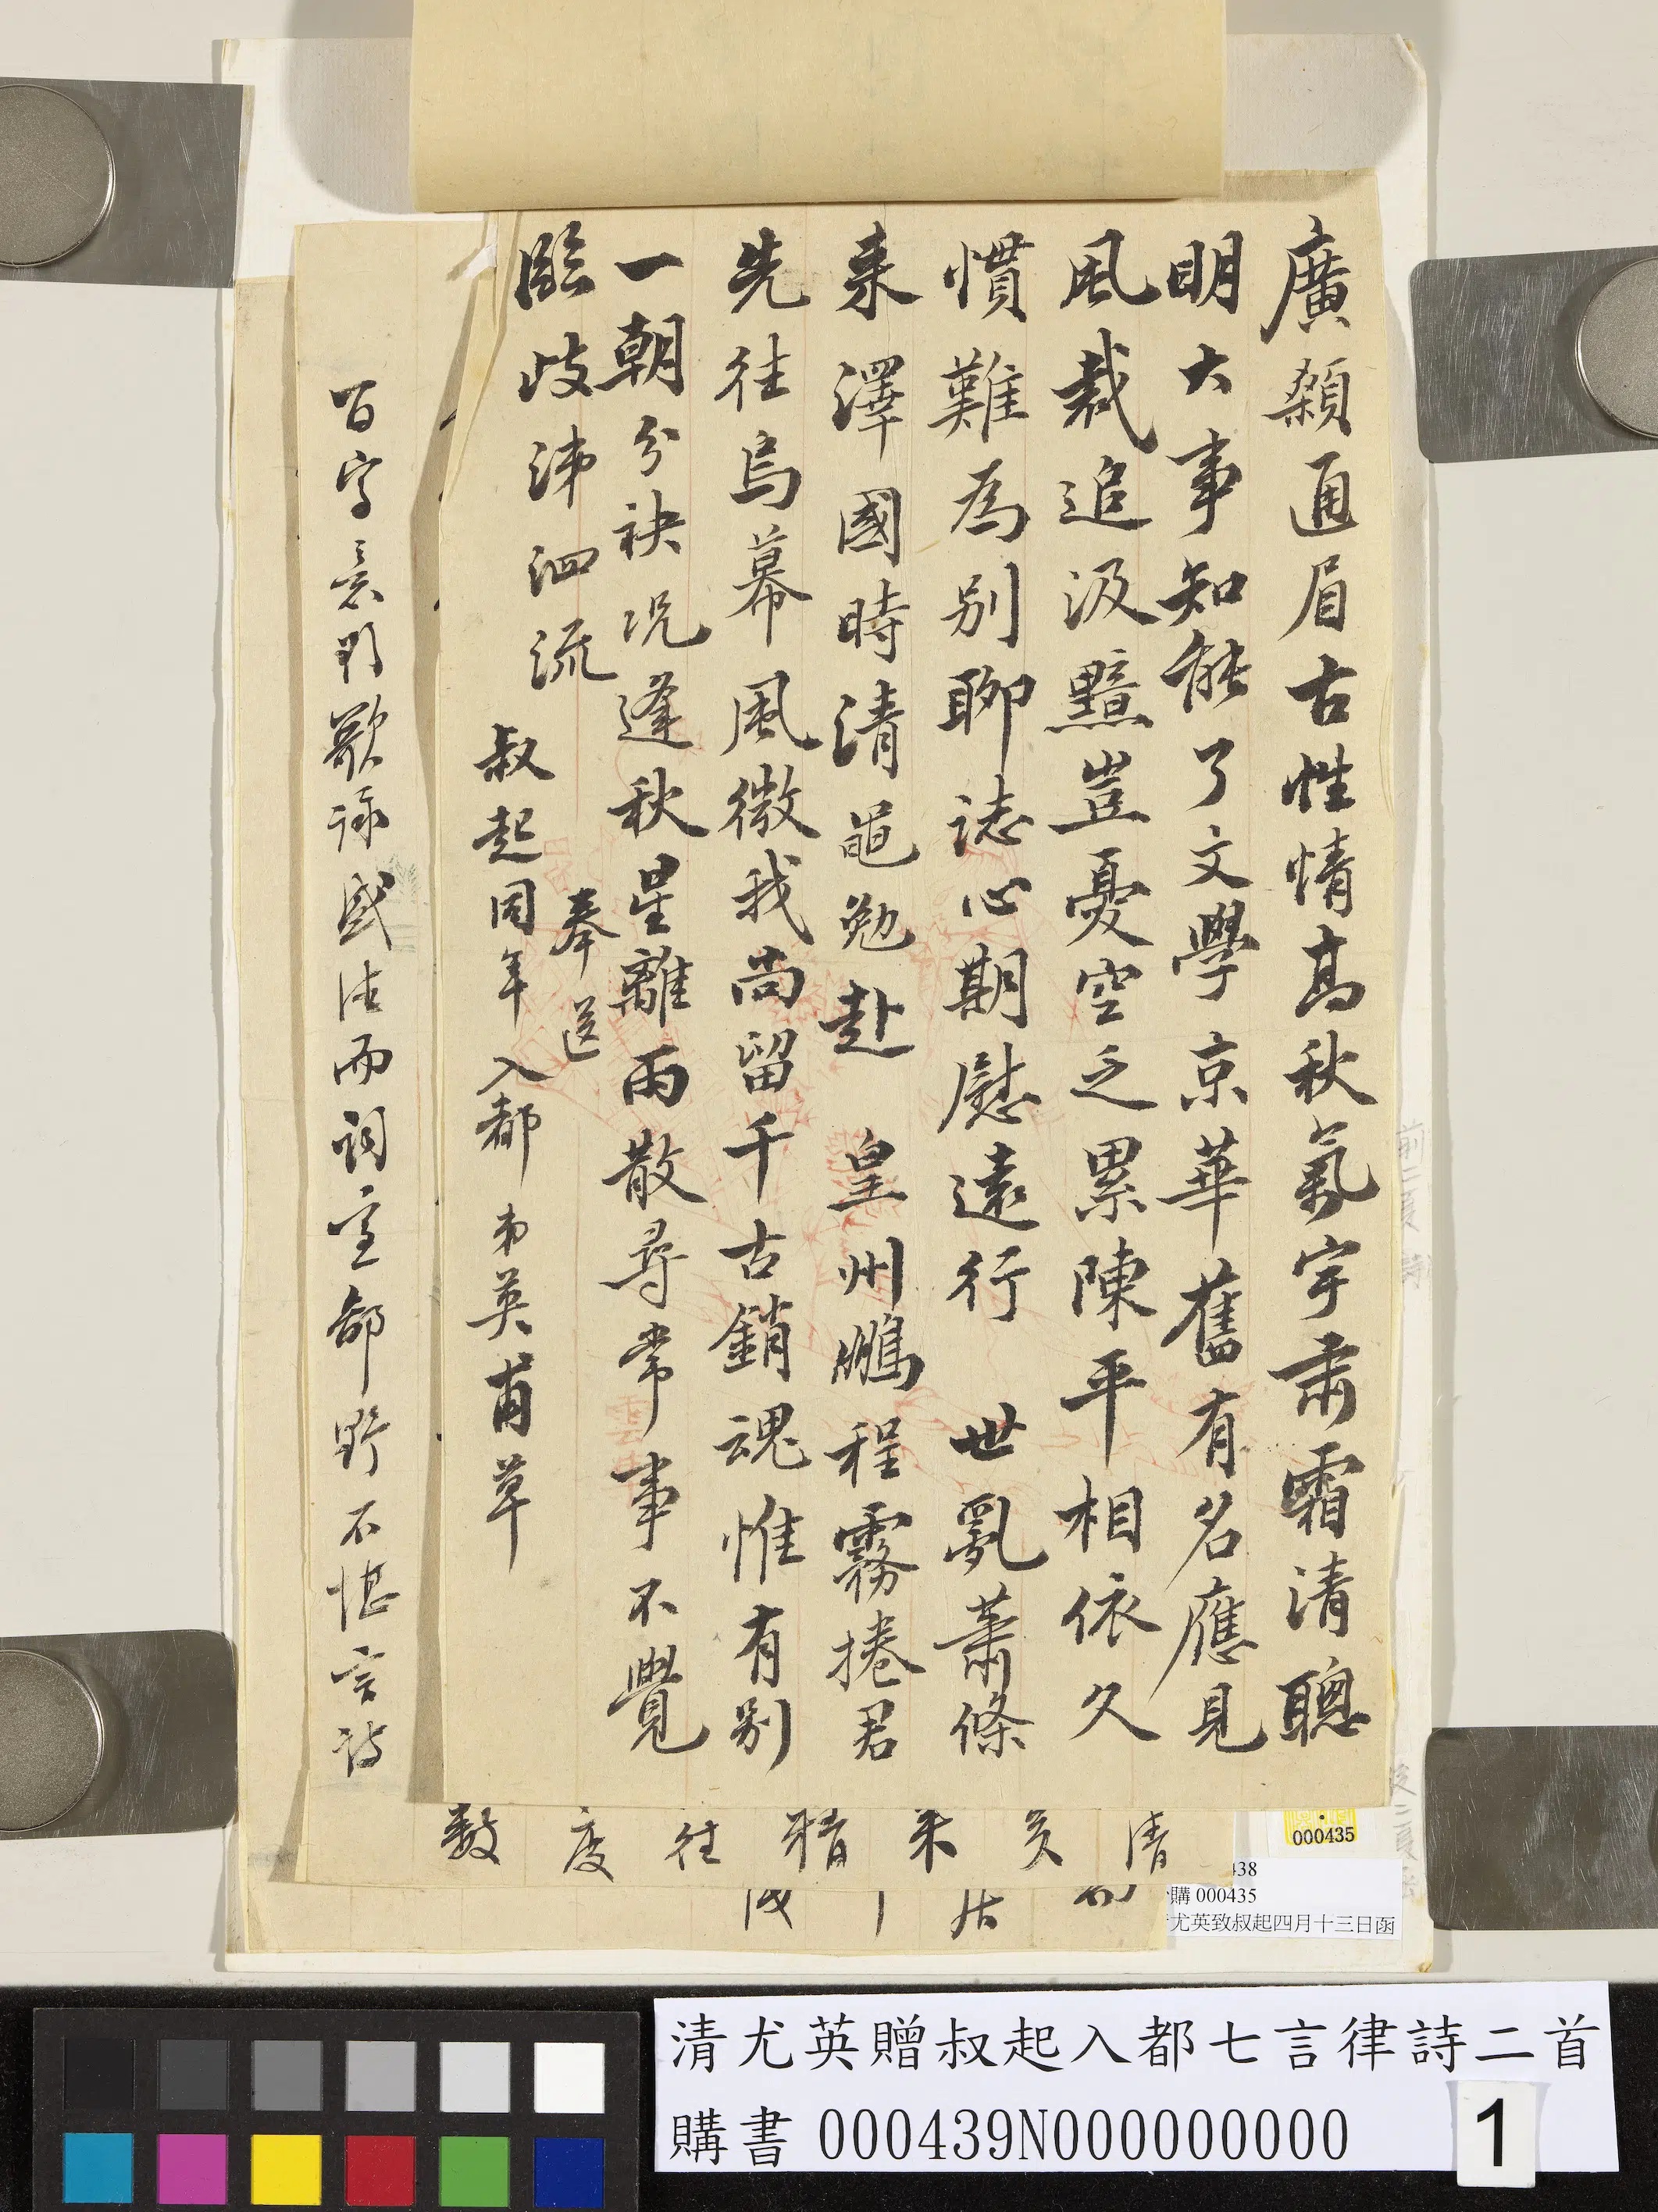 廣顙通眉古性情高秋氣宇肅霜清聰
明大事知能了文學京華舊有名應見
風裁追汲黯豈憂空乏累陳平相依久
慣難為別聊誌心期慰遠行 世亂蕭條
來澤國時清黽勉赴 皇州鵬程霧捲君
先往烏幕風微我尚留千古銷魂惟有別
一朝分袂況逢秋星離雨散尋常事不覺
臨歧涕泗流
奉送
叔起同年入都 弟英甫草
百字意則歌詠盛法而詞實鄙野不堪言詩
清
來
精
往
度
數
000435
438
購 000435
尤英致叔起四月十三日函
清尤英贈叔起入都七言律詩二首
購書 000439N000000000
1